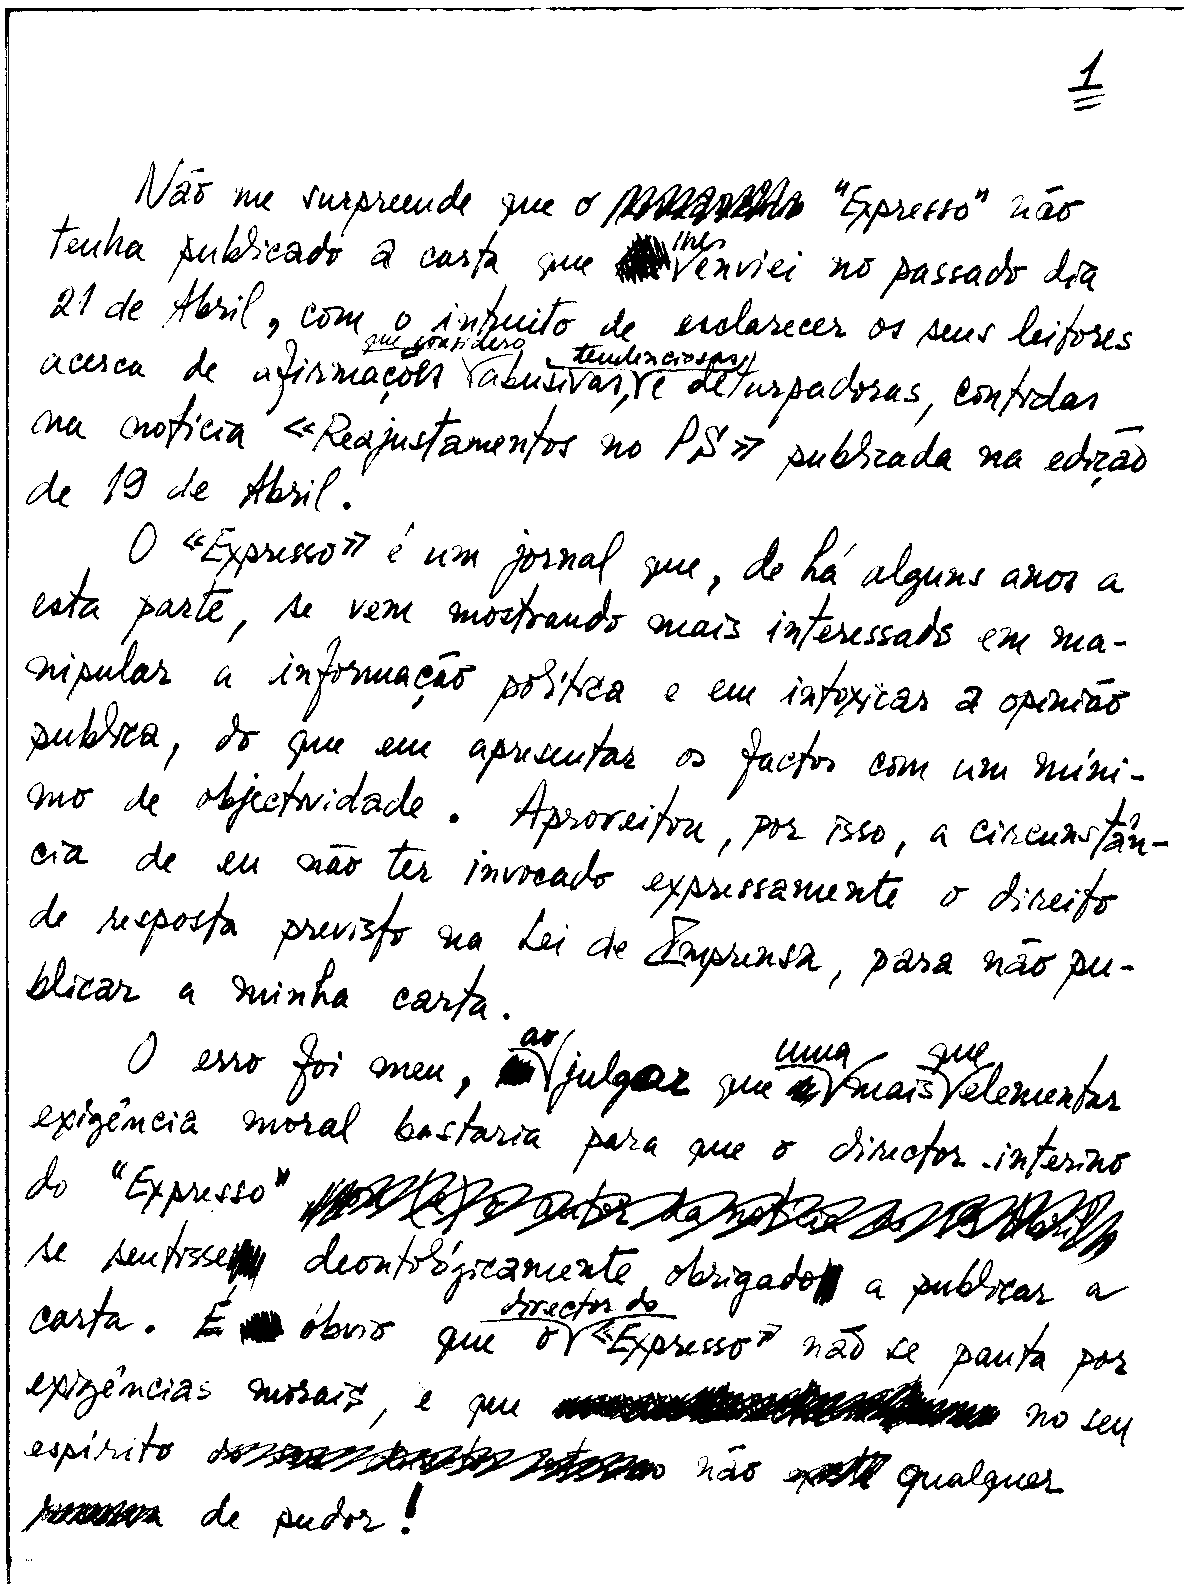 1
Não me surpreende que o "Expresso" não
tenha publicado a carta que lhes enviei no passado dia
21 de Abril, com o intuito de esclarecer os seus leitores
acerca de afirmações que considero abusivas, tendenciosas e deturpadoras, contidas
na notícia «Reajustamentos no PS» publicada na edição
de 19 de Abril.
O «Expresso» é um jornal que, de há alguns anos a
esta parte, se vem mostrando mais interessado em ma-
nipular a informação política e em intoxicar a opinião
publica, do que em apresentar os factos com um míni-
mo de objectividade. Aproveitou, por isso, a circunstân-
cia de eu não ter invocado expressamente o direito
de resposta previsto na Lei de Imprensa, para não pu-
blicar a minha carta.
O erro foi meu, ao julgar que uma mais que elementar
exigência moral bastaria para que o director interino
do "Expresso"
se sentisse deontológicamente obrigado a publicar a
carta. É óbvio que o director do «Expresso» não se pauta por
exigências morais, e que no seu
espírito não qualquer
de pudor!